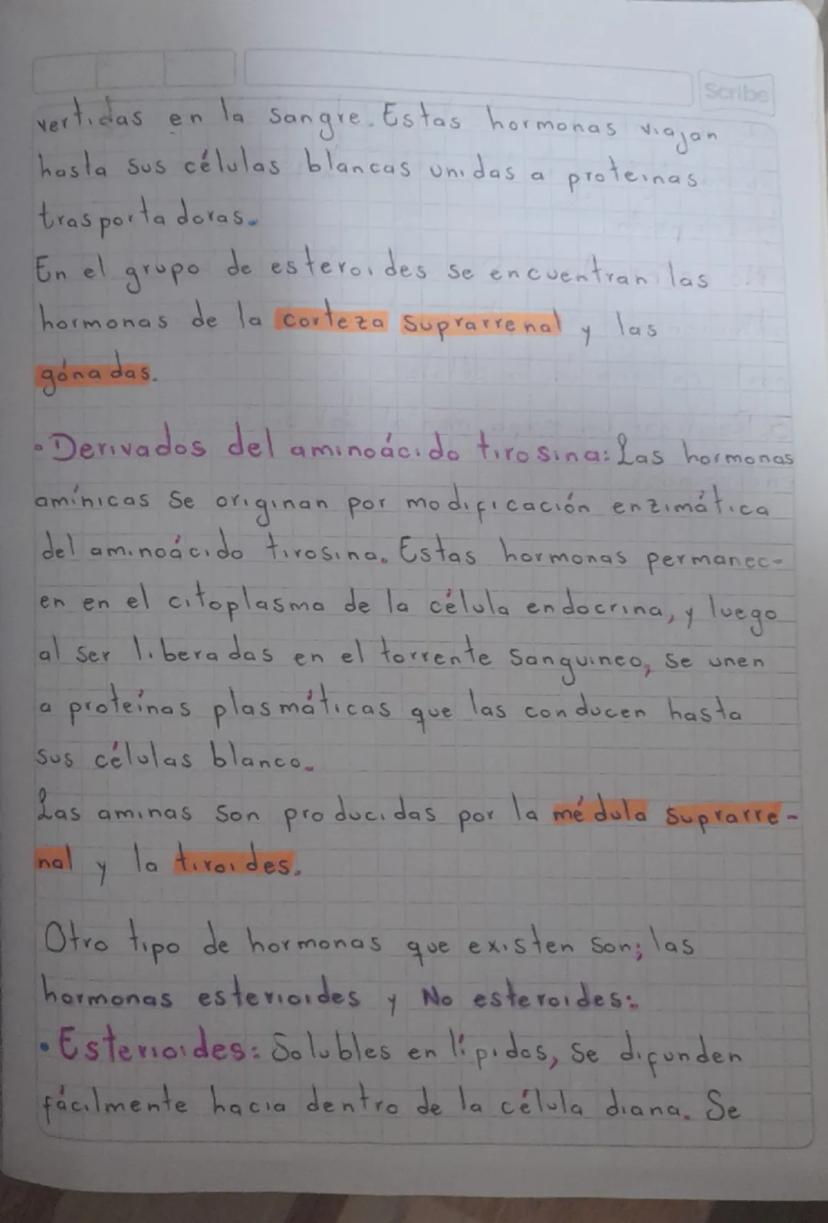 Scribe
vertidas en la sangre. Estas hormonas viajan
hasta sus células blancas unidas a proteinas
trasportadoras.
En el grupo de esteroides se encuentran las
hormonas de la corteza suprarrenal y las
gónadas.
• Derivados del aminoácido tirosina: Las hormonas
amínicas se originan por modificación enzimática
del aminoácido tirosina. Estas hormonas permanec-
en en el citoplasma de la célula endocrina, y luego
al ser liberadas en el torrente sanguineo, se unen
a proteínas plasmáticas que las conducen hasta
sus células blanco.
Las aminas son producidas por la médula suprarre-
nal y la tiroides.
Otro tipo de hormonas que existen son; las
hormonas esterioides y No esteroides:
• Esterioides: Solubles en lípidos, se difunden
fácilmente hacia dentro de la célula diana. Se